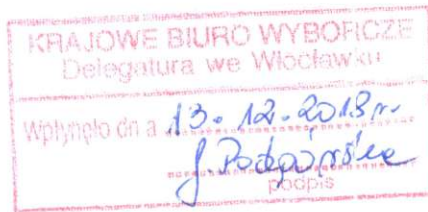 KRAJOWE BIURO WYBORCZE
Delegatura we Włocławku
Wpłynęło dn a 13.12.2018 r.
podpis